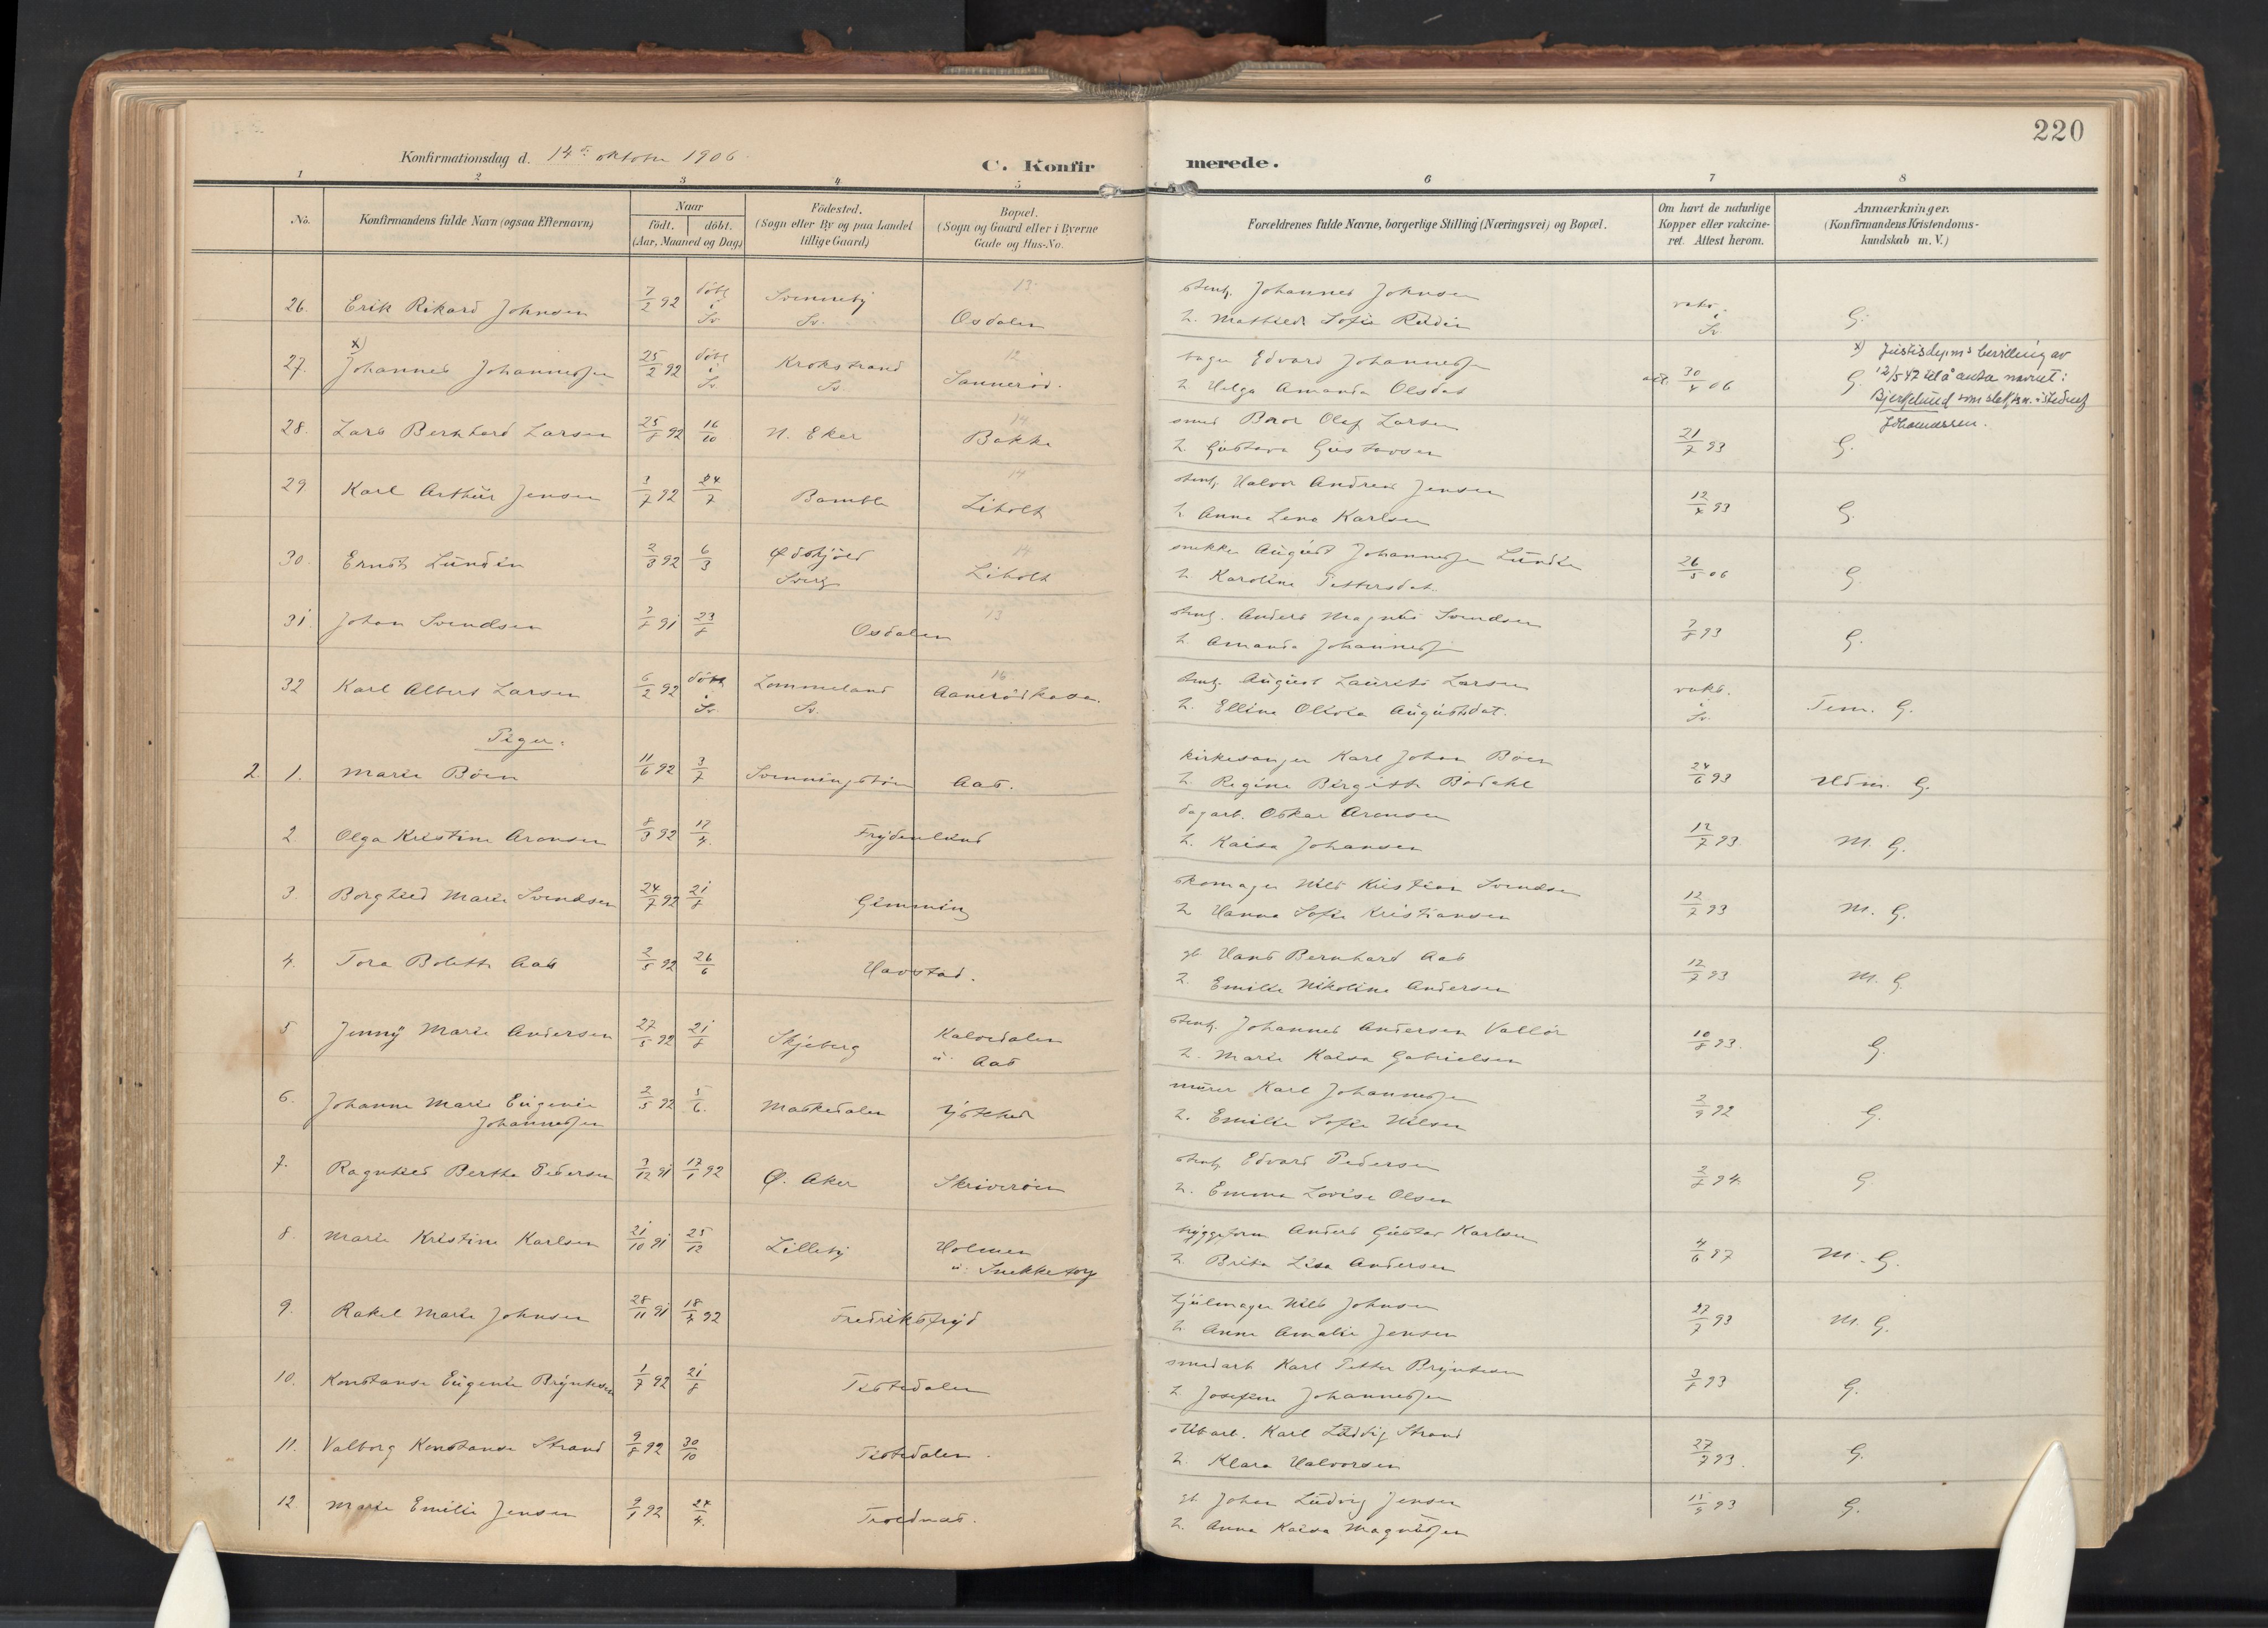 220
Konfirmationsdag d. 14de oktober 1906
C. Konfirmerede.
1 2 3 4 5 6 7 8
No.
Konfirmandens fulde Navn (ogsaa Efternavn)
Naar
födt. döbt.
(Aar, Maaned og Dag)
Födested.
(Sogn eller By og paa Landet
tillige Gaard)
Bopæl.
(Sogn og Gaard eller i Byerne
Gade og Hus-No.
Forældrenes fulde Navne, borgerlige Stilling (Næringsvei) og Bopæl.
Om havt de naturlige
Kopper eller vakcine-
ret. Attest herom.
Anmærkninger.
(Konfirmandens Kristendoms-
kundskab m. V.)
26. Erik Rikard Johnsen 7/2 92 döbt i Sv. Svenneby Sv. 13 Osdalen
stenh. Johannes Johnsen
h. Mathilde Sofie vakc. i Sv. G.
27. x) Johannes Johannessen 25/2 92 döbt i Sv. Krokstrand Sv. 12 Sannerød.
bager Edvard Johannessen
h. Helga Amanda Olsdat 30/4 06 G.
x) Justisdepms bevilling av
12/5 47 til å anta navnet:
Bjerkelund som slektsn. istedenf
Johannessen.
28. Lars Bernhard Larsen 25/8 92 16/10 N. Eker 14 Bakke
smed Olaf Larsen
h. Gustava Gustavsen 21/7 93 G.
29 Karl Arthur Jensen 3/7 92 24/7 Bamble 14 Liholt
stenh. Halvor Andreas Jensen
h. Anna Lena Karlsen 12/4 93 G.
30. Ernst Lundin 2/3 92 6/3 Ødskjöld Sverig 14 Liholt
snekker August Johannessen Lundin
h. Karoline Pettersdat. 26/5 06 G.
31. Johan Svendsen 7/8 91 23/8 Osdalen 13
stenh. Anders Magnus Svendsen
h. Amanda Johannessen 7/8 93 G.
32 Karl Albert Larsen 6/2 92 döbt i Sv. Lommeland Sv. 16 Aanerödkasa.
stenh. August Laurits Larsen
h. Elline Olivia Augustsdat. vakc. i Sv. Tem. G.
Piger.
2. 1. Marie Böen 11/6 92 3/7 Svenningsböen Aas.
kirkesanger Karl Johan Böen
h. Regine Birgitte Bödahl 24/6 93 Udm. G.
2. Olga Kristine Aronsen 8/3 92 17/4. Frydenlund
dagarb. Oskar Aronsen
h. Kaisa Johansen 12/7 93 M. G.
3. Borghild Marie Svendsen 24/7 92 21/8 Gimming
skomager Nils Kristian Svendsen
h. Hanna Sofie Kristiansen 12/7 93 M. G.
4. Tora Bolette Aas 2/5 92 26/6 Havstad.
gb. Hans Bernhard Aas
h. Emilie Nikoline Andersen 12/7 93 M. G.
5 Jenny Marie Andersen 27/5 92 21/8 Skjeberg Kalvedalen u. Aas
stenh. Johannes Andersen Vallör
h. Marie Kaisa Gabrielsen 10/8 93. G.
6. Johanne Marie Eugenie Johannessen 2/5 92 5/6. Maskedalen Ystehed
murer Karl Johannessen
h. Emilie Sofie Nilsen 2/9 92 G.
7. Ragnhild Bertha Pedersen 3/12 91 17/1 92 Ø. Aker Skriveröen
stenh. Edvard Pedersen
h. Emma Lovise Olsen 2/8 94 G.
8. Marie Kristine Karlsen 21/10 91 25/12 Lilleby Holmen u. Snekketorp
byggeform Anders Gustav Karlsen
h. Brita Lisa Andersen 4/6 97 M. G.
9. Rakel Marie Johnsen 28/11 91 18/4 92 Fredriksfryd
hjulmager Nils Johnsen
h. Anne Amalie Jensen 27/7 93 M. G.
10. Konstanse Eugenie Bryntesen 1/7 92 21/8 Tistedalen
smedarb Karl Petter Bryntesen
h. Josefine Johannessen 3/8 93 G.
11. Valborg Konstanse Strand 9/8 92 30/10 Tistedalen.
slibarb. Karl Ludvig Strand
h. Klara Halvorsen 27/7 93. G.
12. Marie Emilie Jensen 9/1 92 24/4. Troldnæs.
gb. Johan Ludvig Jensen
h. Anna Kaisa Magnussen 15/9 93 G.